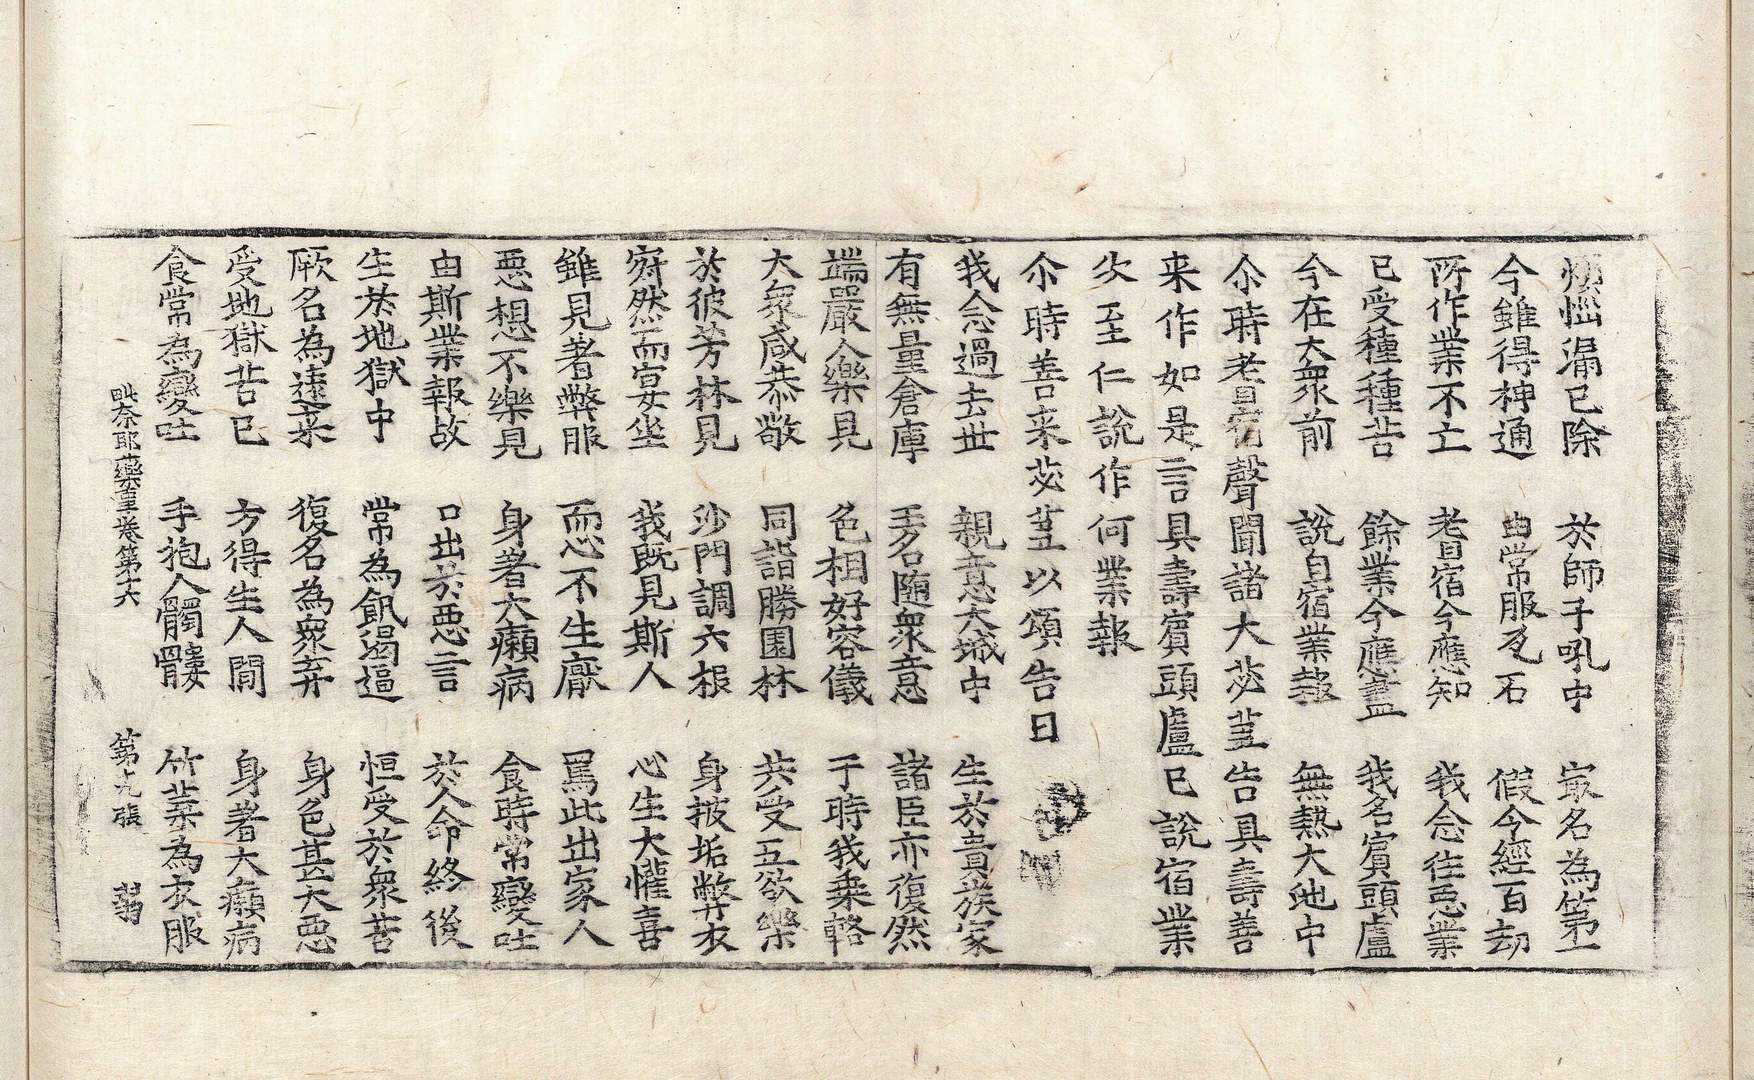 煩惱漏已除 於師子吼中 㝡名為第一
今雖得神通 由常服瓦石 假令經百劫
所作業不亡 老宿今應知 我念往惡業
已受種種苦 餘業今應盡 我名賔頭盧
今在大衆前 說自宿業報 無熱大池中
尒時老宿聲聞諸大苾蒭告具壽善
来作如是言具壽賔頭盧已說宿業
次至仁說作何業報
尒時善来苾蒭以頌告曰
我念過去世 親意大城中 生於貴族家
有無量倉庫 王名随衆意 諸臣亦復然
端嚴人樂見 色相好容儀 于時我乗輅
大衆咸恭敬 同詣勝園林 共受五欲樂
於彼芳林見 沙門調六根 身披垢弊衣
寂然而宴坐 我既見斯人 心生大懽喜
雖見著弊服 而心不生厭 罵此出家人
惡想不樂見 身著大癩病 食時常變吐
由斯業報故 口出於惡言 於人命終後
生於地獄中 常為飢渴逼 恒受於衆苦
厥名為逺来 復名為衆弃 身色甚大惡
受地獄苦已 方得生人間 身著大癩病
食常為變吐 手抱人髑髏 竹葉為衣服
毗奈耶藥事卷第十六 第九張